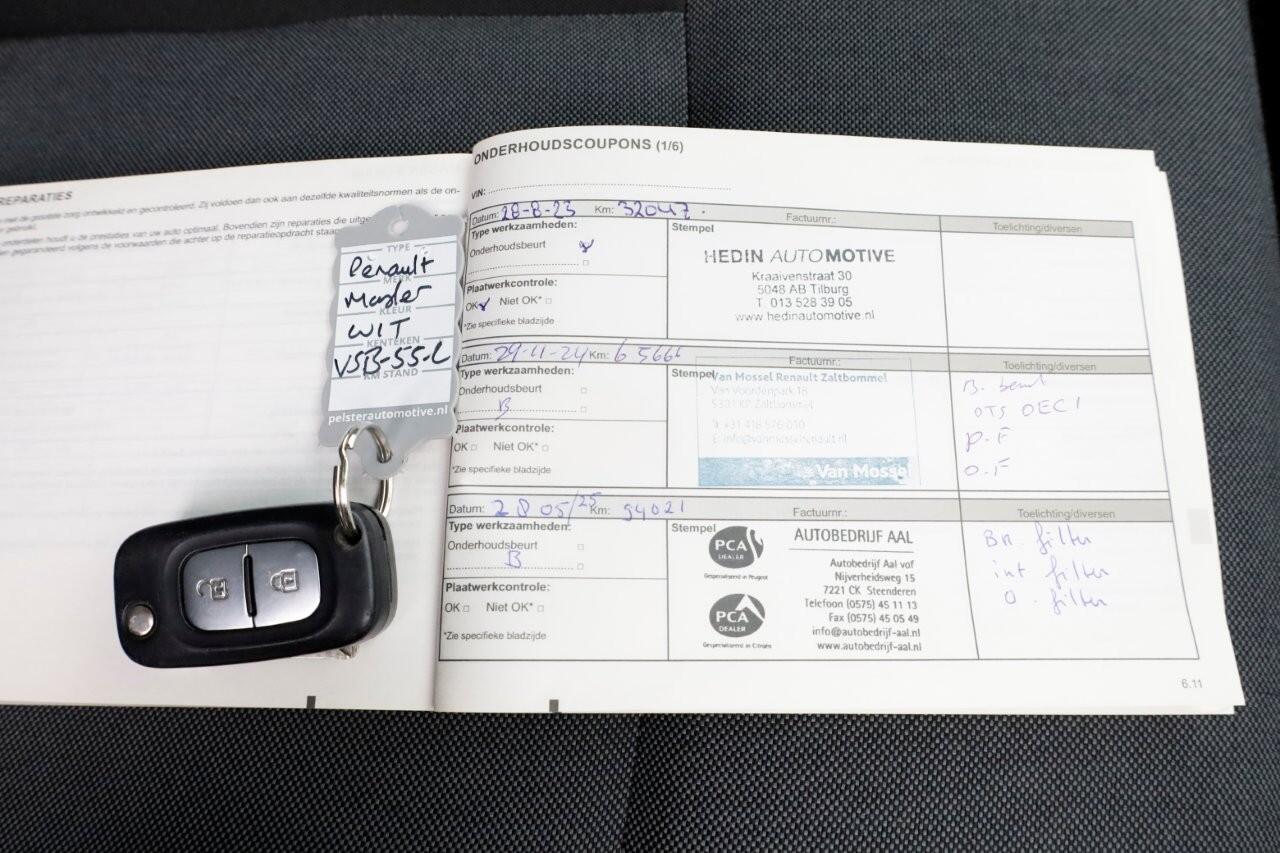 REPARATIES
met de grootste zorg ontwikkeld en gecontroleerd. Zij voldoen dan ook aan dezelfde kwaliteitsnormen als de on-
gebruikt.
onderdelen houdt u de prestaties van uw auto optimaal. Bovendien zijn reparaties die uitge
gegarandeerd volgens de voorwaarden die achter op de reparatieopdracht staan
TYPE
Renault
MERK
Master
KLEUR
WIT
KENTEKEN
VSB-55-L
KM STAND
pelsterautomotive.nl
ONDERHOUDSCOUPONS (1/6)
VIN:
Datum: 28-8-23 Km: 32047. Factuurnr.: Toelichting/diversen
Type werkzaamheden:
Onderhoudsbeurt
Plaatwerkcontrole:
OK Niet OK* □
*Zie specifieke bladzijde
Stempel
HEDIN AUTOMOTIVE
Kraaivenstraat 30
5048 AB Tilburg
T. 013 528 39 05
www.hedinautomotive.nl
Datum: 29-11-24 Km: Factuurnr.: Toelichting/diversen
Type werkzaamheden:
Onderhoudsbeurt □
B □
Plaatwerkcontrole:
OK □ Niet OK* □
*Zie specifieke bladzijde
Stempel
Van Mossel Renault Zaltbommel
Van Voordenpark 18
5301 KP Zaltbommel
T: +31 418 576 010
E: info@vanmosselrenault.nl
Van Mossel
B. beurt
OTS OEC1
P.F
O.F
Datum: 28 05/25 Km: 94021 Factuurnr.: Toelichting/diversen
Type werkzaamheden:
Onderhoudsbeurt □
B □
Plaatwerkcontrole:
OK □ Niet OK* □
*Zie specifieke bladzijde
Stempel
PCA
DEALER
Gespecialiseerd in Peugeot
PCA
DEALER
Gespecialiseerd in Citroën
AUTOBEDRIJF AAL
Autobedrijf Aal vof
Nijverheidsweg 15
7221 CK Steenderen
Telefoon (0575) 45 11 13
Fax (0575) 45 05 49
info@autobedrijf-aal.nl
www.autobedrijf-aal.nl
Br. filter
int filter
O. filter
6.11